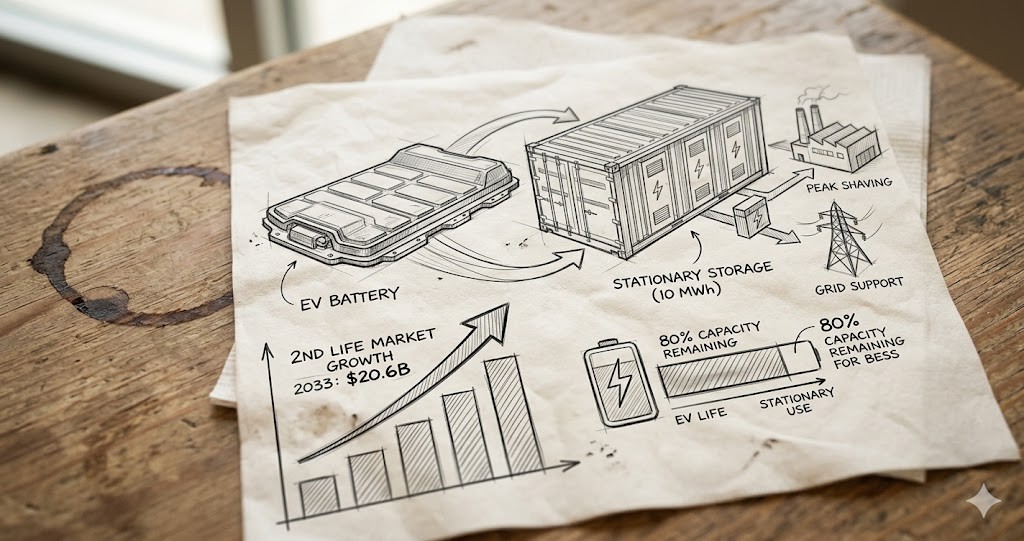 EV BATTERY
STATIONARY STORAGE
(10 MWh)
PEAK SHAVING
GRID SUPPORT
2ND LIFE MARKET
GROWTH
2033: $20.6B
80% CAPACITY
REMAINING
80%
CAPACITY
REMAINING
FOR BESS
EV LIFE
STATIONARY
USE